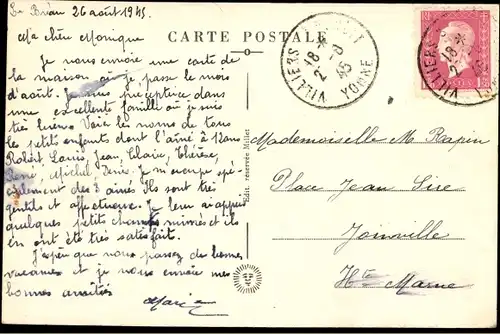 Le Bréau 26 août 1945.
CARTE POSTALE
Ma chère Monique
Je vous envoie une carte de
la maison où je passe le mois
d'août. Je suis préceptrice dans
une excellente famille où je suis
très bien. Voici les noms de tous
les petits enfants dont l'aîné a 12 ans
Robert, Louis, Jean, Claire, Thérèse,
René, Michel, Denis. Je m'occupe spé-
cialement des 3 aînés. Ils sont très
gentils et affectueux. Je leur ai appris
quelques petits chants mimés et ils
en ont été très satisfait.
J'espère que vous passez de bonnes
vacances et je vous envoie mes
bonnes amitiés
Marie
Edit. réservée Mullet
VILLIERS
18 H
2 -8
45
YONNE
VILLIERS
18 H
Mademoiselle M. Rapin
Place Jean Sire
Joinville
Hte Marne